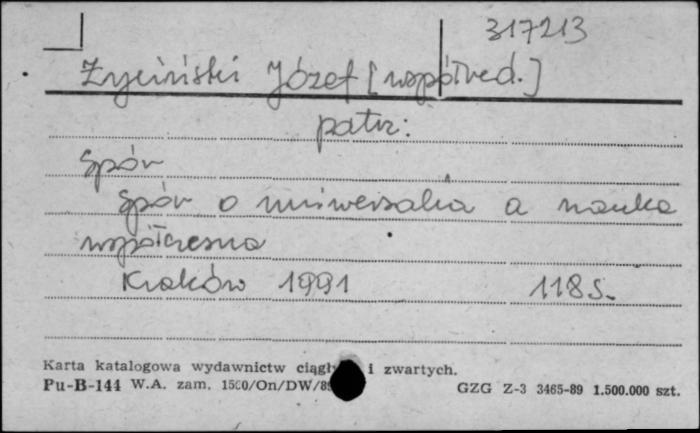 317213
Życiński Józef [współred.]
patrz:
Spór
Spór o uniwersalia a nauka
współczesna
Kraków 1991 118 s.
Karta katalogowa wydawnictw i zwartych.
Pu-B-144 W.A. zam. 1500/On/DW/89 GZG Z-3 3465-89 1.500.000 szt.